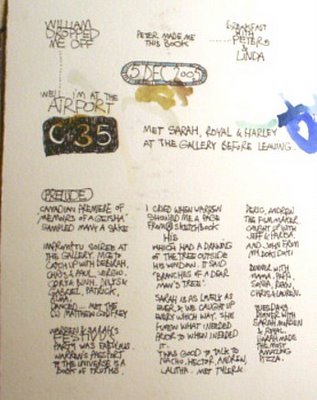 WILLIAM
DROPPED
ME OFF
PETER MADE ME
THIS BOOK
BREAKFAST
WITH
PETER
&
LINDA
5 DEC 2005
WELL I'M AT THE
AIRPORT
C 35
MET SARAH, ROYAL & HARLEY
AT THE GALLERY BEFORE LEAVING.
PRELUDE
CANADIAN PREMIERE OF
'MEMOIRS OF A GEISHA'
SAMPLED MANY A SAKE
IMPROMPTU SOIREE AT
THE GALLERY. NICE TO
CATCH UP WITH DEBORAH,
CHRIS & PAUL, SERGIO,
GABRIEL, PATRICK,
DANCED... MET THE
DJ MATTHEW GODFREY
WARREN & SARAH'S
FESTIVUS
PARTY WAS FABULOUS.
WARREN'S PASSPORT
TO THE UNIVERSE IS A
BOOK OF TRUTHS
I CRIED WHEN WARREN
SHOWED ME A PAGE
FROM SKETCHBOOK
HIS
WHICH HAD A DRAWING
OF THE TREE OUTSIDE
HIS WINDOW. IT SAID
'BRANCHES OF A DEAR
MAN'S TREE'.
SARAH IS AS LOVELY AS
EVER & WE CAUGHT UP
EVERY WHICH WAY. SHE
KNEW WHAT I NEEDED
PRIOR TO WHEN I NEEDED
IT.
IT WAS GOOD TO TALK TO
NACHO, HECTOR, ANDREW,
LALITHA. MET TYLER &
DERIC, ANDREW
THE FILM MAKER.
CAUGHT UP WITH
JEFF &
AND JOHN FROM
DINNER WITH
MAMA, PAPA,
SONIA, RYAN,
CHRIS & LAUREN.
TUESDAY'S
DINNER WITH
SARAH, WARREN
& ROYAL.
SARAH MADE
THE MOST
AMAZING
PIZZA.